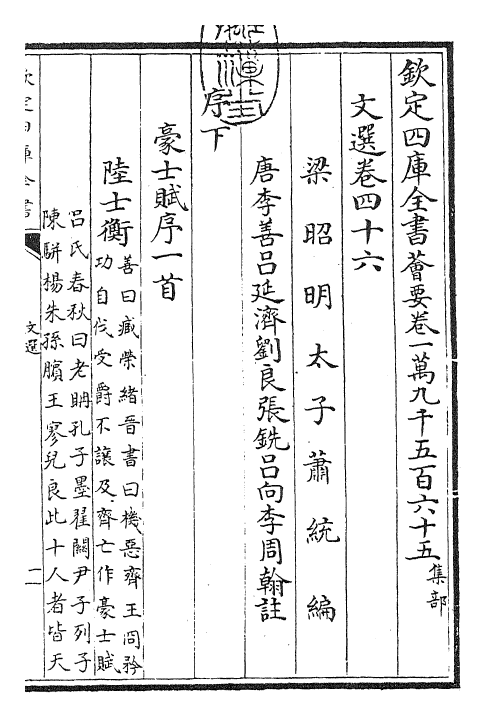 欽定四庫全書薈要卷一萬九千五百六十五 集部
文選卷四十六
梁昭明太子蕭統編
唐李善呂延濟劉良張銑呂向李周翰註
序下
豪士賦序一首
陸士衡
善曰臧榮緒晉書曰機惡齊王冏矜
功自伐受爵不讓及齊亡作豪士賦
呂氏春秋曰老耼孔子墨翟關尹子列子
陳駢楊朱孫臏王廖兒良此十人者皆天
文選